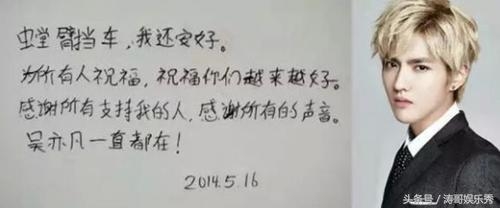 虫堂臂挡车，我还安好。
为所有人祝福，祝福你们越来越好。
感谢所有支持我的人，感谢所有的声音。
吴亦凡一直都在！
2014.5.16
头条号／涛哥娱乐秀